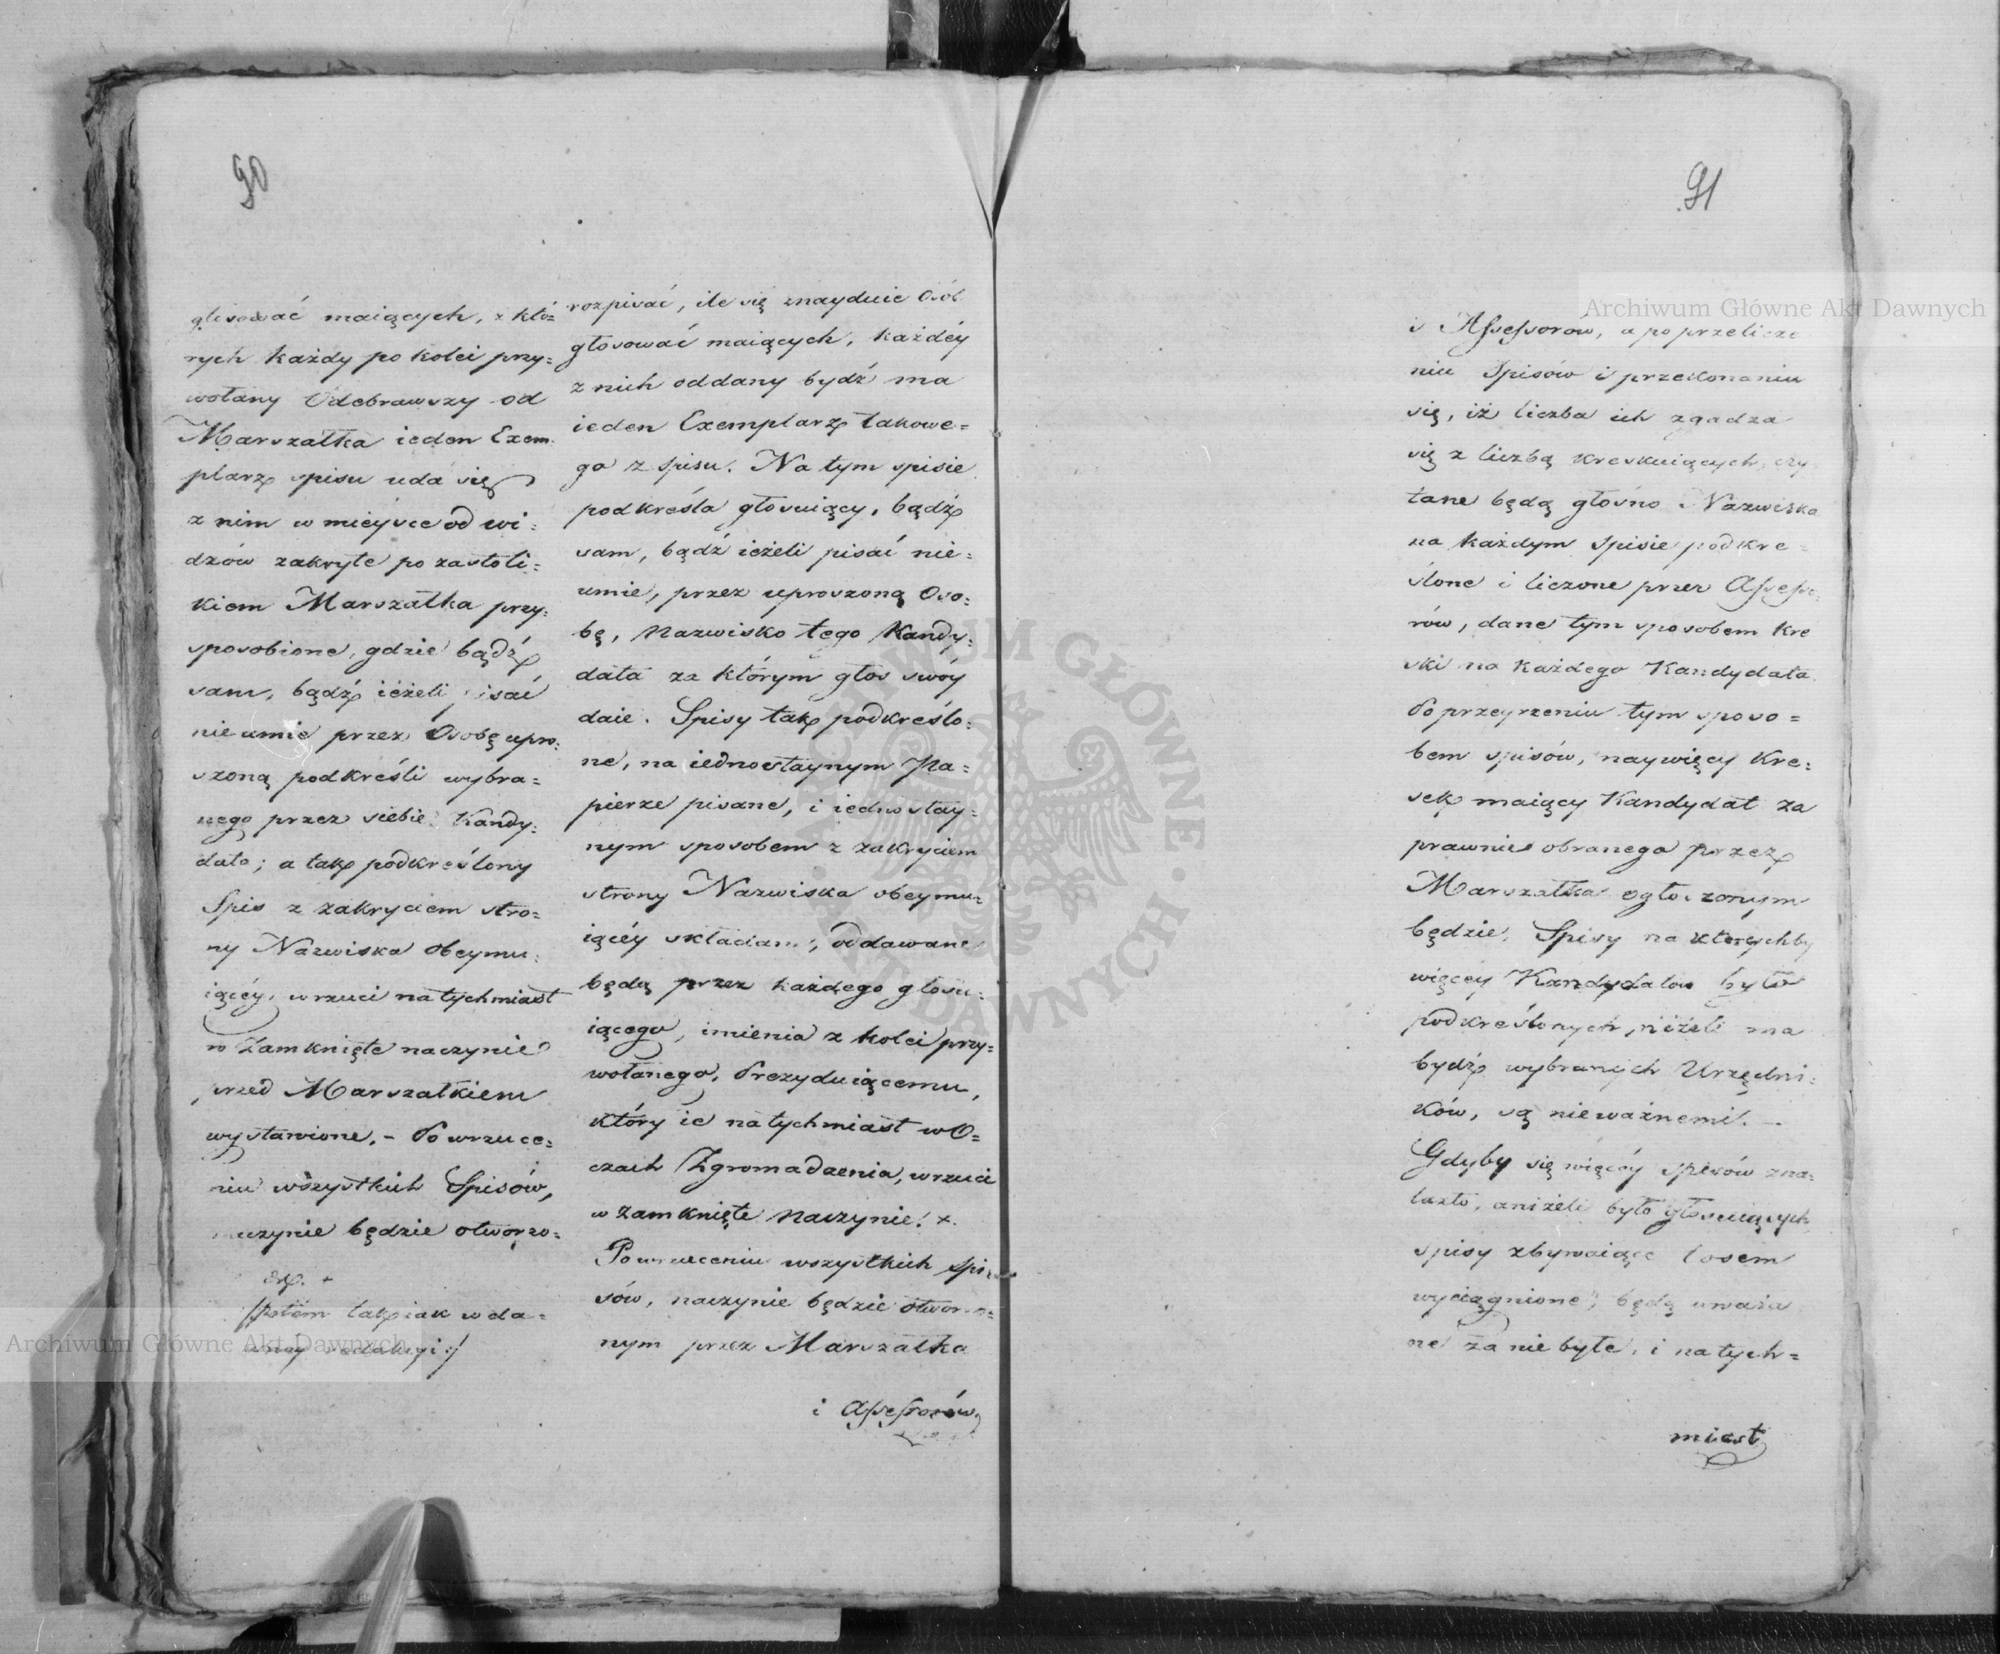 90
głosować maiących, z któ=
rych każdy po kolei przy=
wołany Odebrawszy od
Marszałka ieden Exem=
plarz spisu uda się
z nim w mieysce od wi=
dzów zakryte poza stoli=
kiem Marszałka przy=
sposobione, gdzie bądź
sam, bądź ieżeli pisać
nieumie przez Osobę upro=
szoną podkreśli wybra=
nego przez siebie Kandy=
data; a tak podkreślony
Spis z zakryciem stro=
ny Nazwiska obeymu=
iącéy, wrzuci natychmiast
w zamknięte naczynie
przed Marszałkiem
wystawione. – Po wrzuce=
niu wszystkich Spisów,
naczynie będzie otworzo=
potém tak iak w da=
redakcyi:/
rozpisać, ile się znayduie Osób
głosować maiących, każdéy
z nich oddany bydź ma
ieden Exemplarz takowe=
go z spisu. Na tym spisie
podkreśla głosuiący, bądź
sam, bądź ieżeli pisać nie=
umie, przez uproszoną Oso=
bę, Nazwisko tego Kandy=
data za którym głos swóy
daie. Spisy tak podkreślo=
ne, na iednostaynym Pa=
pierze pisane, i iednostay=
nym sposobem z zakryciem
strony Nazwiska obeymu=
iącéy składane, oddawane
będą przez każdego głosu=
iącego, imienia z kolei przy=
wołanego, Prezyduiącemu,
który ie natychmiast w O=
czach Zgromadzenia, wrzuci
w zamknięte Naczynie. +.
Po wrzuceniu wszystkich Spi=
sów, naczynie będzie otworzo=
nym przez Marszałka
i Assessorów
91
i Assessorow, a po przelicze
niu Spisów i przekonaniu
się, iż liczba ich zgadza
się z liczbą kreskuiących, czy
tane będą głosno Nazwiska
na każdym Spisie podkre=
ślone i liczone przez Assesso=
rów, dane tym sposobem Kre
ski na każdego Kandydata.
Po przeyrzeniu tym sposo=
bem spisów, naywięcy Kre=
sek maiący Kandydat za
prawnie obranego przez
Marszałka ogłoszonym
będzie. Spisy na których by
więcey Kandydatow było
podkreślonych, niżeli ma
bydź wybranych Urzędni=
ków, są nieważnemi. –
Gdyby się więcéy spisów zna=
lazło, aniżeli było głosuiących
spisy zbywaiące losem
wyciągnione, będą uważa
ne za niebyłe, i natych=
miast
Archiwum Główne Akt Dawnych
Archiwum Główne Akt Dawnych
ARCHIWUM GŁÓWNE AKT DAWNYCH